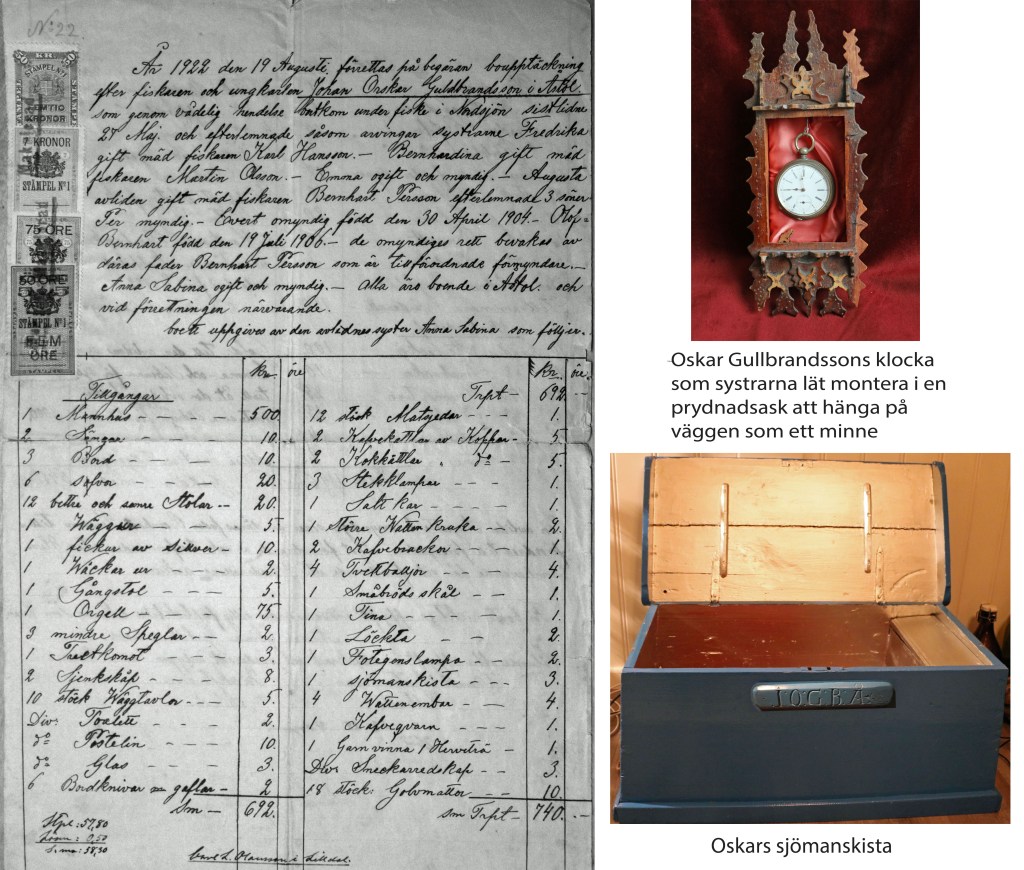 No: 22.
År 1922 den 19 Augusti förrettas på begäran bouppteckning
efter fiskaren och ungkarlen Johan Oskar Guldbrandsson i Astol.
som genom vådelig hendelse bortkom under fiske i Nordsjön sistlidne
27 Maj och efterlemnade såsom arvingar systrarne Fredrika
gift mäd fiskaren Karl Hansson. — Bernhardina gift mäd
fiskaren Martin Olsson. — Emma ogift och myndig. — Augusta
avliden gift mäd fiskaren Bernhart Persson efterlemnade 3 söner
Per myndig. — Evert omyndig född den 30 April 1904. — Olof=
Bernhart född den 19 Juli 1906. — de omyndiges rett bevakas av
däras fader Bernhart Persson som är tillförordnade förmyndare. —
Anna Sabina ogift och myndig. — alla äro boende i Astol. och
vid förrettningen närvarande.
boett uppgives av den avlidnes syster Anna Sabina som följer.
50 KR 50
STÄMPEL No 1
FEMTIO KRONOR
7 KRONOR
STÄMPEL No 1
75 ÖRE
50 ÖRE
STÄMPEL No 1
FEM
ÖRE
STÄMPEL
Kr. öre
Tillgångar
1 Mannhus — 500
2 Sängar — 10.
3 Bord — 10.
6 soffor — 20.
12 bettre och semre Stolar — 20.
1 Wäggure — 5.
1 fickur av Silwer — 10.
1 Wäckar ur — 2.
1 Gångstol — 5.
1 Orgell — 75.
3 mindre Speglar — 2.
1 — 3.
2 Sjenkskåp — 8.
10 stöck Wäggtavlor — 5.
Div: Toalett — 2.
do Postelin — 10.
do Glas — 3.
6 Bordknivar gaflar — 2
Sm — 692.
Kr. öre
Trpt — 692.
12 stöck Matsjedar — 1.
2 Kafvekettlar av Koppar — 5.
2 Kokkättlar „ do — 5.
3 Stekklampar — 1.
1 Salt kar — 1.
1 större Watten kruka — 2.
2 Kafvebrackor — 1.
4 Tvettballjor — 4.
1 Småbröds skål — 1.
1 Tina — 1.
1 Löckta — 2.
1 Fotogenslampa — 2.
1 sjömanskista — 3.
4 Wattenembar — 4.
1 Kafveqvarn — 1.
1 Garn vinna 1 Herveträ — 1.
Div: Sneckarredskap — 3.
18 stöck: Golvmattor — 10.
sm Trpt — 740.
Stpl: 57,80
0,50
S:ma: 58,30
Carl L. Olausson i Lilldal.
Oskar Gullbrandssons klocka
som systrarna lät montera i en
prydnadsask att hänga på
väggen som ett minne
I O G B A
Oskars sjömanskista